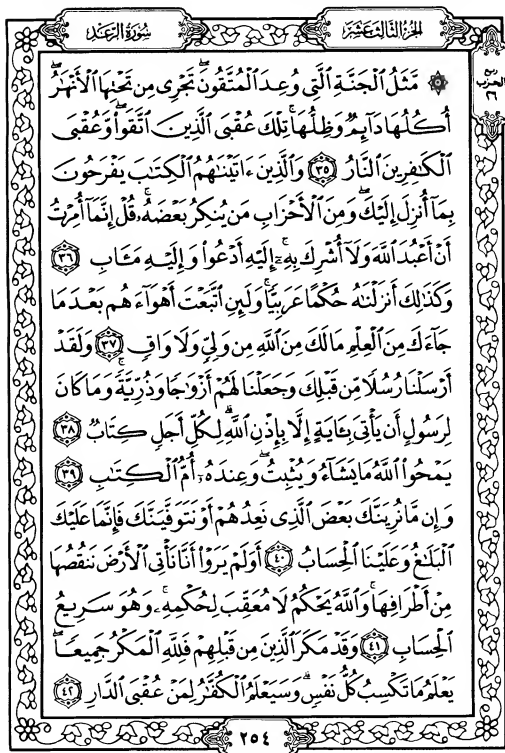 سُورَةُ الرَّعْدِ
الجُزْءُ الثَّالِثَ عَشَرَ
ربع
الحزب
٢٦
۞ مَّثَلُ ٱلْجَنَّةِ ٱلَّتِى وُعِدَ ٱلْمُتَّقُونَ ۖ تَجْرِى مِن تَحْتِهَا ٱلْأَنْهَـٰرُ ۖ
أُكُلُهَا دَآئِمٌ وَظِلُّهَا ۚ تِلْكَ عُقْبَى ٱلَّذِينَ ٱتَّقَوا۟ ۖ وَّعُقْبَى
ٱلْكَـٰفِرِينَ ٱلنَّارُ ٣٥ وَٱلَّذِينَ ءَاتَيْنَـٰهُمُ ٱلْكِتَـٰبَ يَفْرَحُونَ
بِمَآ أُنزِلَ إِلَيْكَ ۖ وَمِنَ ٱلْأَحْزَابِ مَن يُنكِرُ بَعْضَهُۥ ۚ قُلْ إِنَّمَآ أُمِرْتُ
أَنْ أَعْبُدَ ٱللَّهَ وَلَآ أُشْرِكَ بِهِۦٓ ۚ إِلَيْهِ أَدْعُوا۟ وَإِلَيْهِ مَـَٔابِ ٣٦
وَكَذَٰلِكَ أَنزَلْنَـٰهُ حُكْمًا عَرَبِيًّا ۚ وَلَئِنِ ٱتَّبَعْتَ أَهْوَآءَهُم بَعْدَ مَا
جَآءَكَ مِنَ ٱلْعِلْمِ مَا لَكَ مِنَ ٱللَّهِ مِن وَلِىٍّ وَلَا وَاقٍ ٣٧ وَلَقَدْ
أَرْسَلْنَا رُسُلًا مِّن قَبْلِكَ وَجَعَلْنَا لَهُمْ أَزْوَٰجًا وَذُرِّيَّةً ۚ وَمَا كَانَ
لِرَسُولٍ أَن يَأْتِىَ بِـَٔايَةٍ إِلَّا بِإِذْنِ ٱللَّهِ ۗ لِكُلِّ أَجَلٍ كِتَابٌ ٣٨
يَمْحُوا۟ ٱللَّهُ مَا يَشَآءُ وَيُثْبِتُ ۖ وَعِندَهُۥٓ أُمُّ ٱلْكِتَـٰبِ ٣٩
وَإِن مَّا نُرِيَنَّكَ بَعْضَ ٱلَّذِى نَعِدُهُمْ أَوْ نَتَوَفَّيَنَّكَ فَإِنَّمَا عَلَيْكَ
ٱلْبَلَـٰغُ وَعَلَيْنَا ٱلْحِسَابُ ٤٠ أَوَلَمْ يَرَوْا۟ أَنَّا نَأْتِى ٱلْأَرْضَ نَنقُصُهَا
مِنْ أَطْرَافِهَا ۚ وَٱللَّهُ يَحْكُمُ لَا مُعَقِّبَ لِحُكْمِهِۦ ۚ وَهُوَ سَرِيعُ
ٱلْحِسَابِ ٤١ وَقَدْ مَكَرَ ٱلَّذِينَ مِن قَبْلِهِمْ فَلِلَّهِ ٱلْمَكْرُ جَمِيعًا ۖ
يَعْلَمُ مَا تَكْسِبُ كُلُّ نَفْسٍ ۗ وَسَيَعْلَمُ ٱلْكُفَّـٰرُ لِمَنْ عُقْبَى ٱلدَّارِ ٤٢
٢٥٤